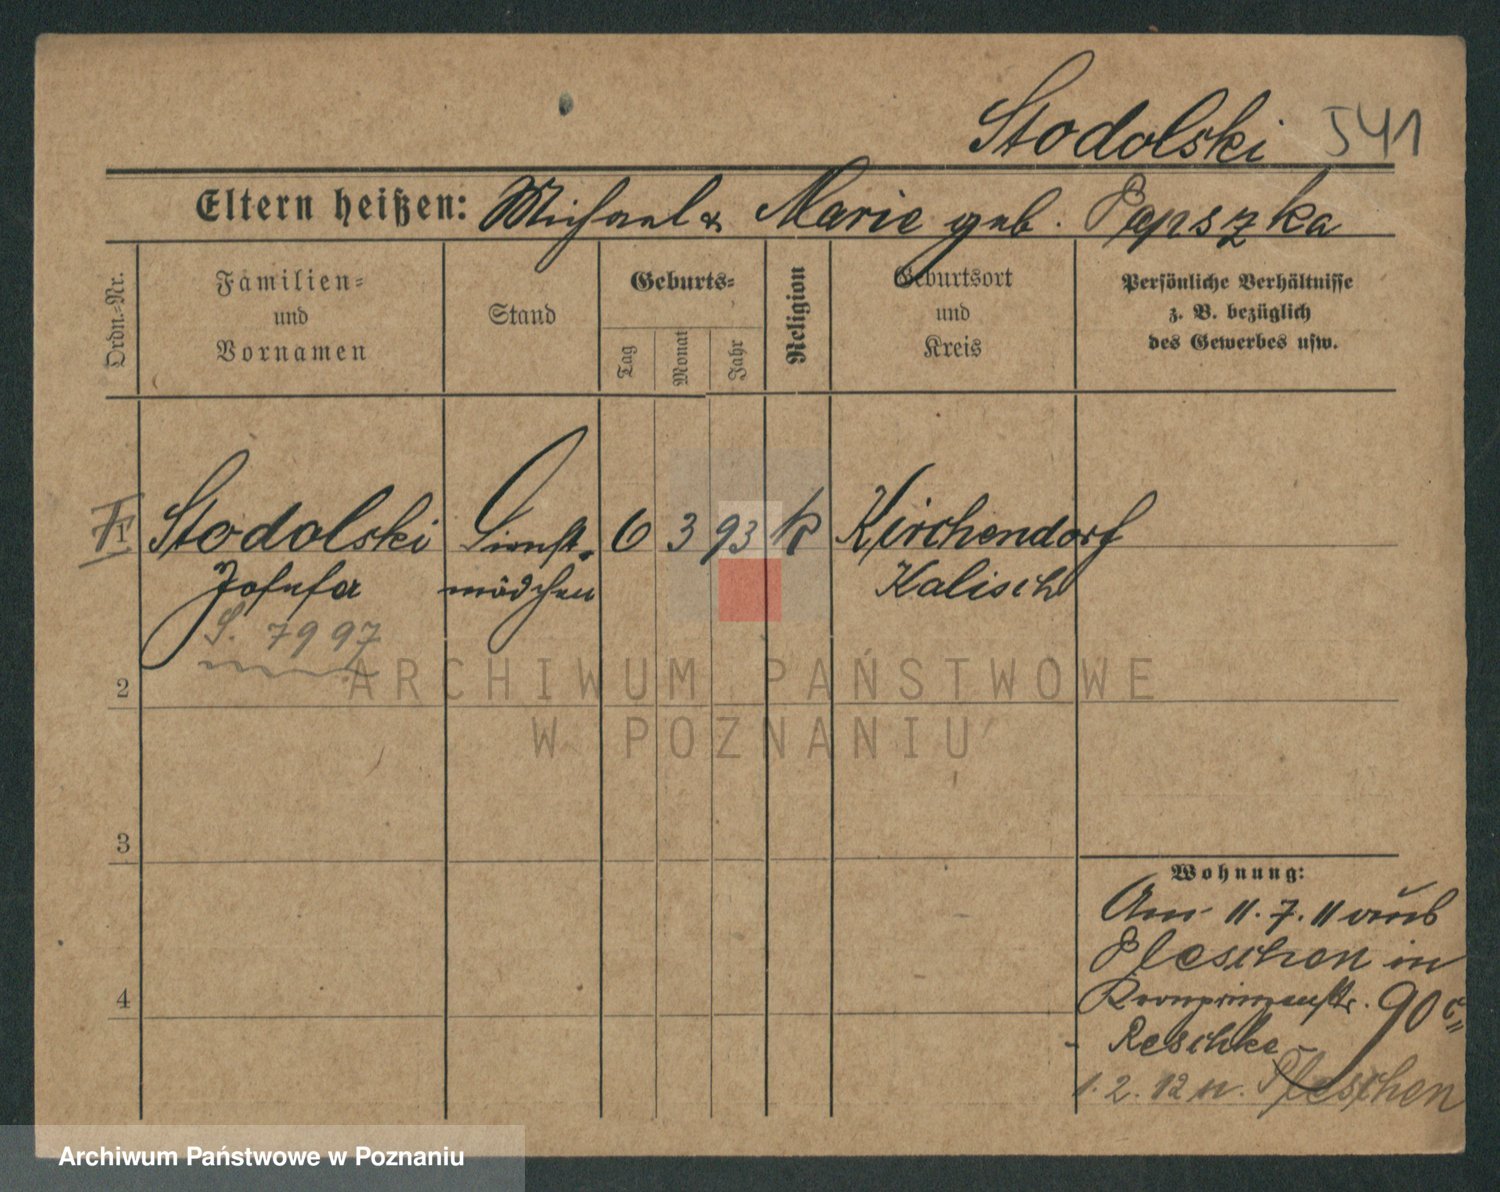 Stodolski 541
Eltern heißen: Michael & Marie geb. Papszka
Ordn.-Nr.
Familien-
und
Vornamen
Stand
Geburts-
Tag
Monat
Jahr
Religion
Geburtsort
und
Kreis
Persönliche Verhältnisse
z. B. bezüglich
des Gewerbes usw.
Stodolski Dienst- 6 3 93 k Kirchendorf
Josefa mädchen Kalisch
S. 7997
2
3
4
Wohnung:
Am 11.7.11 aus
Pleschen in
Kronprinzenstr. 90
Reschke
1.2.12 n. Pleschen
ARCHIWUM PAŃSTWOWE
W POZNANIU
Archiwum Państwowe w Poznaniu